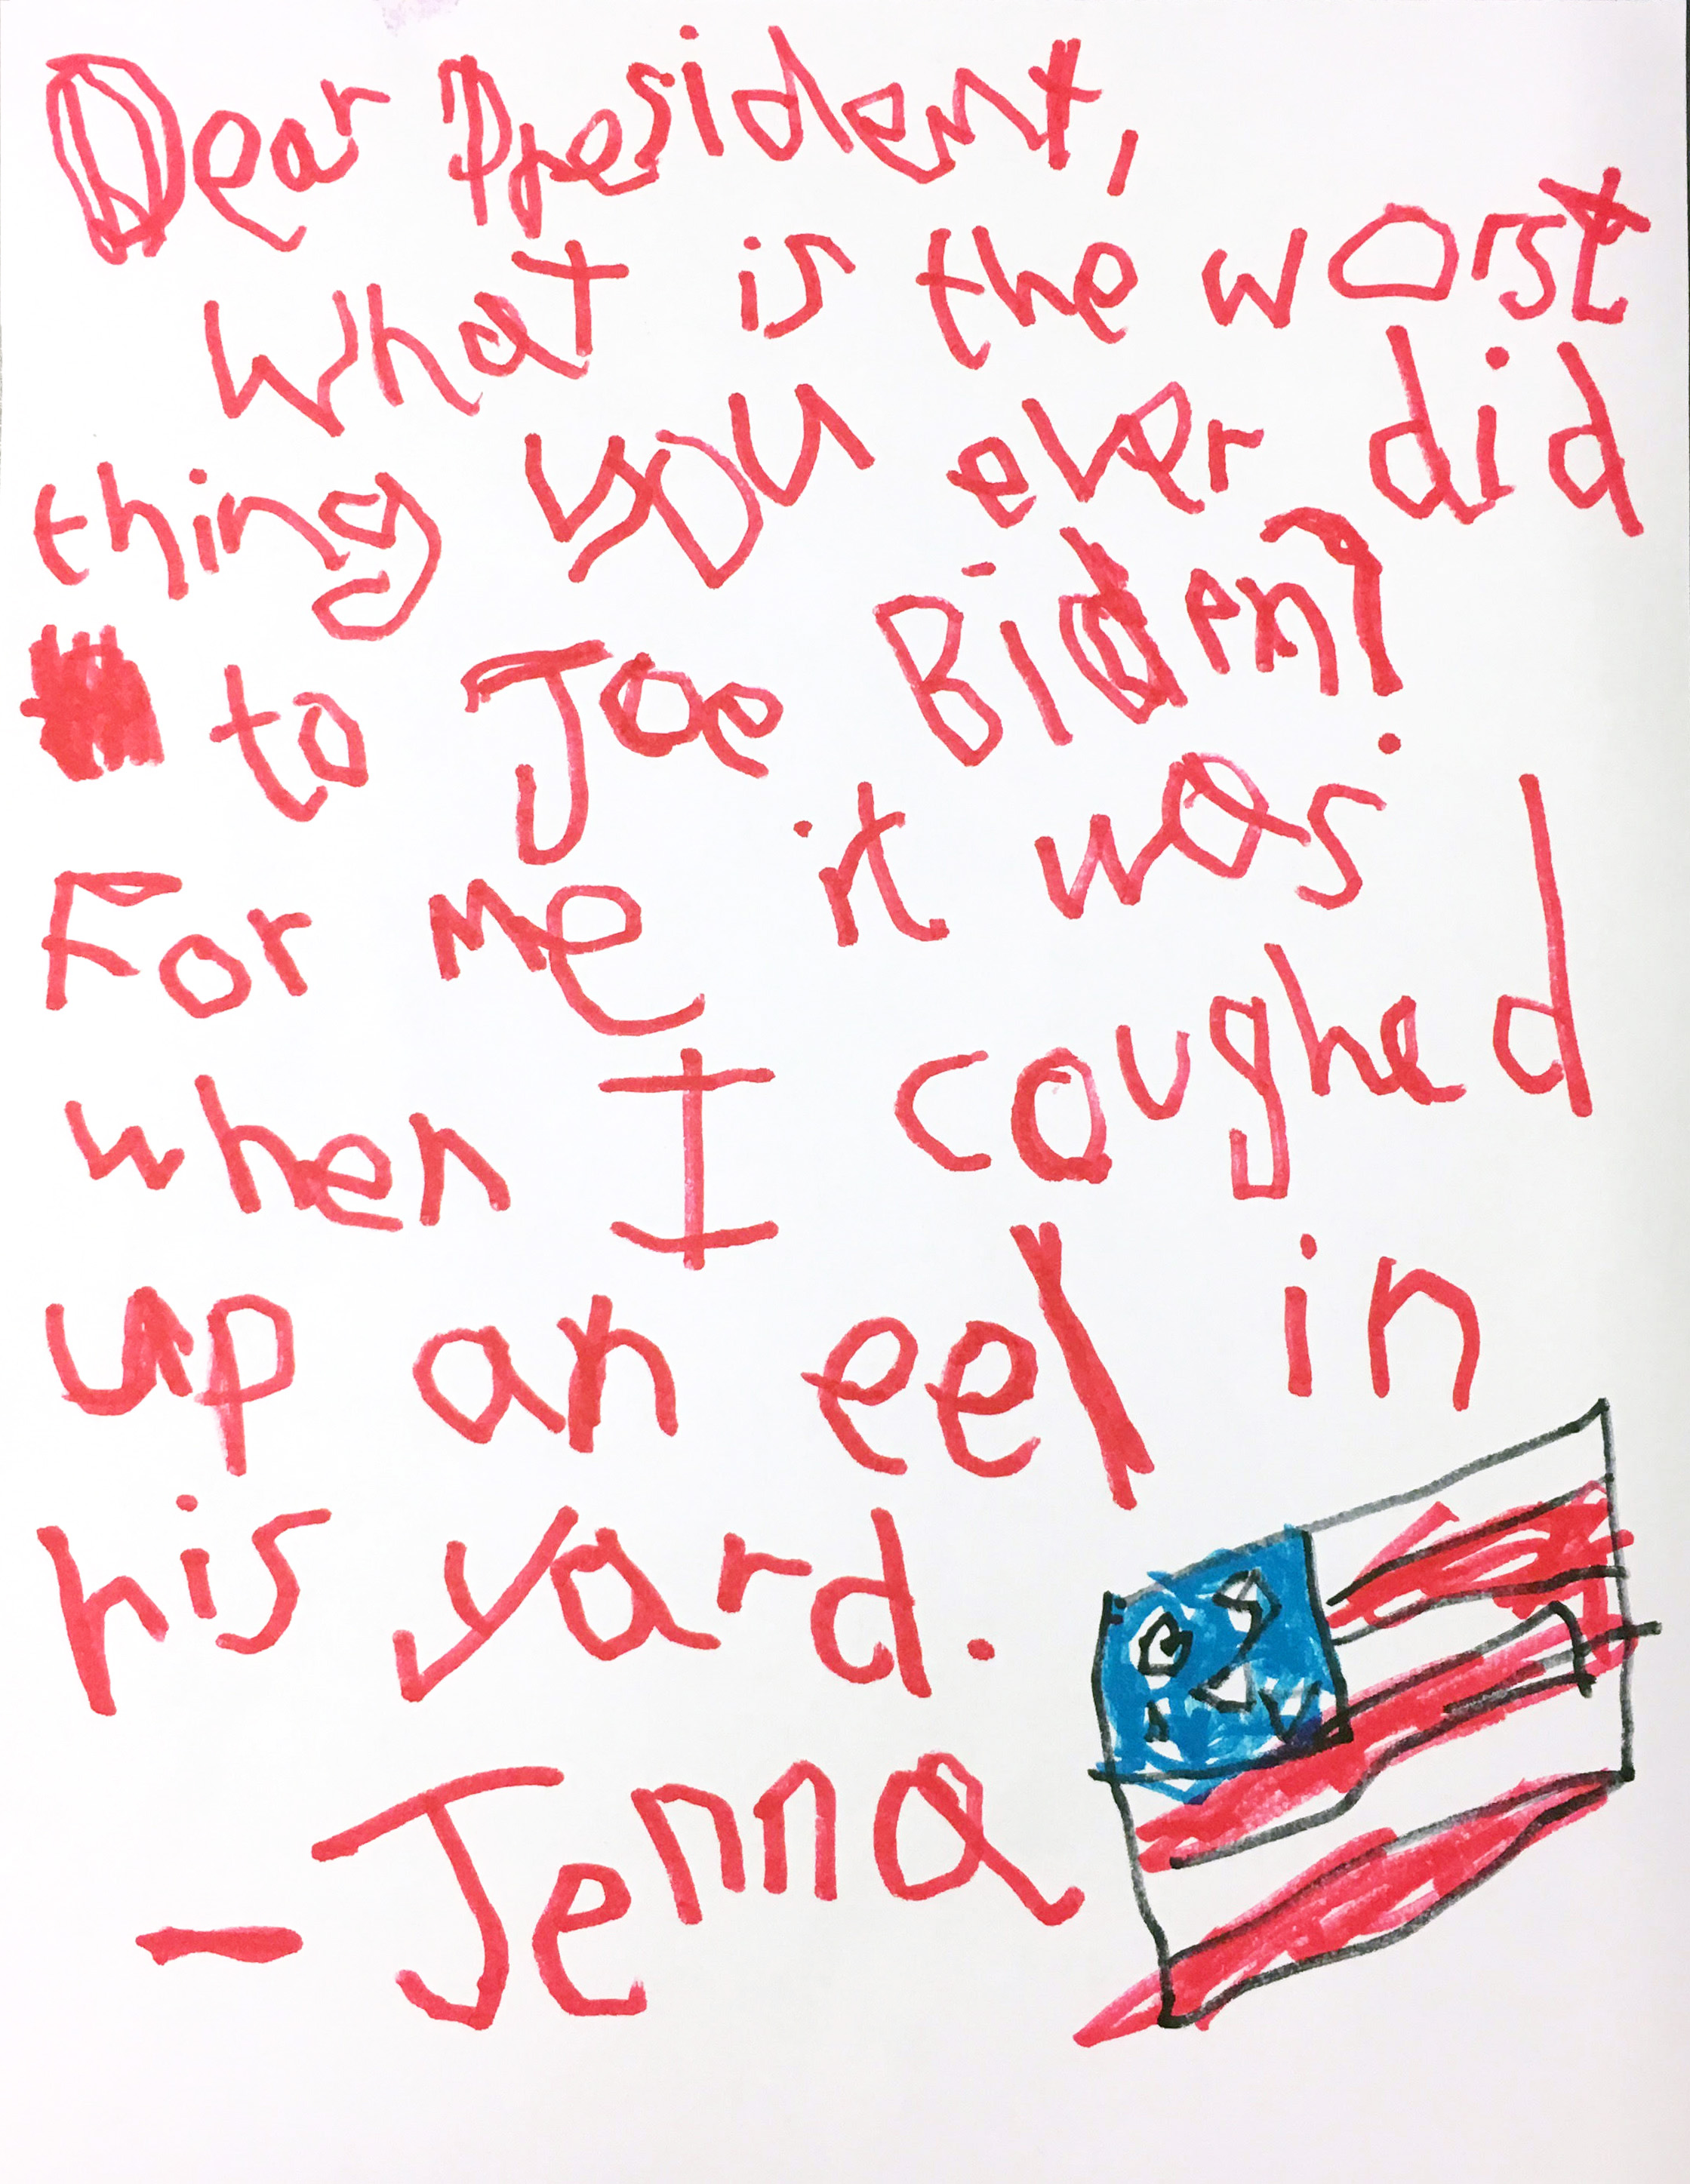 Dear President,
What is the worst
thing you ever did
to Joe Biden?
For me it was
when I coughed
up an eel in
his yard.
- Jenna